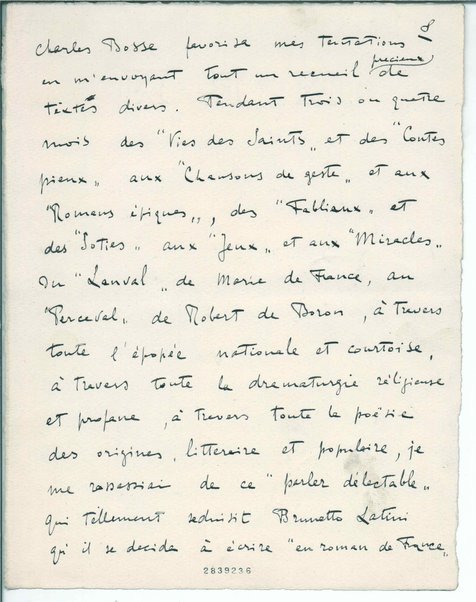 8
Charles Bosse favorisa mes tentations
precieux
en m'envoyant tout un recueil de
textes divers. Pendant trois ou quatre
mois des "Vies des Saints" et des "Contes
pieux" aux "Chansons de geste" et aux
"Romans épiques", des "Fabliaux" et
des "Soties" aux "Jeux" et aux "Miracles"
Du "Lanval" de Marie de France, au
"Perceval" de Robert de Boron, à travers
toute l'épopée nationale et courtoise,
à travers toute la dramaturgie réligieuse
et profane, à travers toute la poësie
des origines, litteraire et populaire, je
me rassasiai de ce "parler délectable"
qui tellement seduisit Brunetto Latini
qu'il se decida à écrire "en roman de France"
2839236